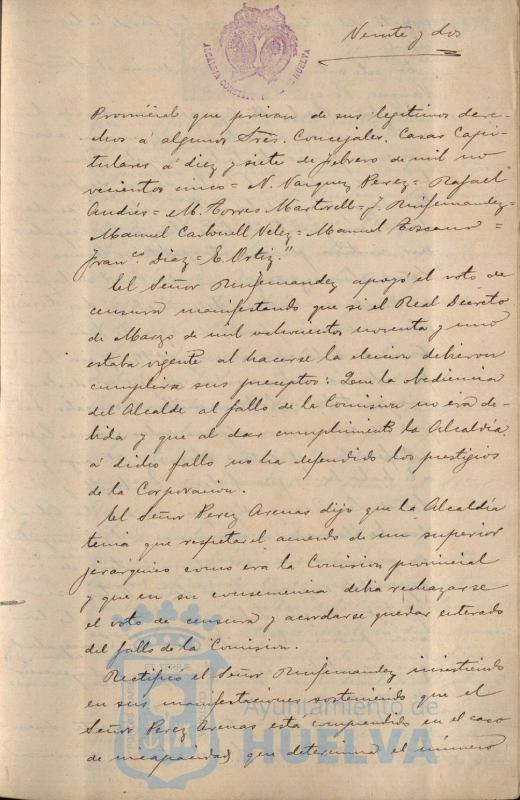 Veinte y dos
ALCALDIA CONSTITUCIONAL HUELVA
Provincial que privan de sus legitimos dere-
chos á algunos Sres. Concejales. Casas Capi-
tulares á diez y siete de febrero de mil no
vecientos cinco = N. Vazquez Perez = Rafael
Andrés = M. Torres Martorell = J. Ruifernandez =
Manuel Carbonell Velez = Manuel Toscano =
Fran.co Diaz = E. Ortiz."
El Señor Ruifernandez apoyó el voto de
censura manifestando que si el Real Decreto
de Marzo de mil ochocientos noventa y uno
estaba vigente al hacerse la eleccion debieron
cumplirse sus preceptos: Que la obediencia
del Alcalde al fallo de la Comision no era de-
bida y que al dar cumplimiento la Alcaldía
á dicho fallo no ha defendido los prestigios
de la Corporacion.
El Señor Perez Arenas dijo que la Alcaldía
tenia que respetar el acuerdo de un superior
jerárquico como era la Comision provincial
y que en su consecuencia debia rechazarse
el voto de censura y acordarse quedar enterado
del fallo de la Comision.
Rectificó el Señor Ruifernandez insistiendo
en sus manifestaciones sosteniendo que el
Señor Perez Arenas está comprendido en el caso
de incapacidad que determina el número
Ayuntamiento de
HUELVA